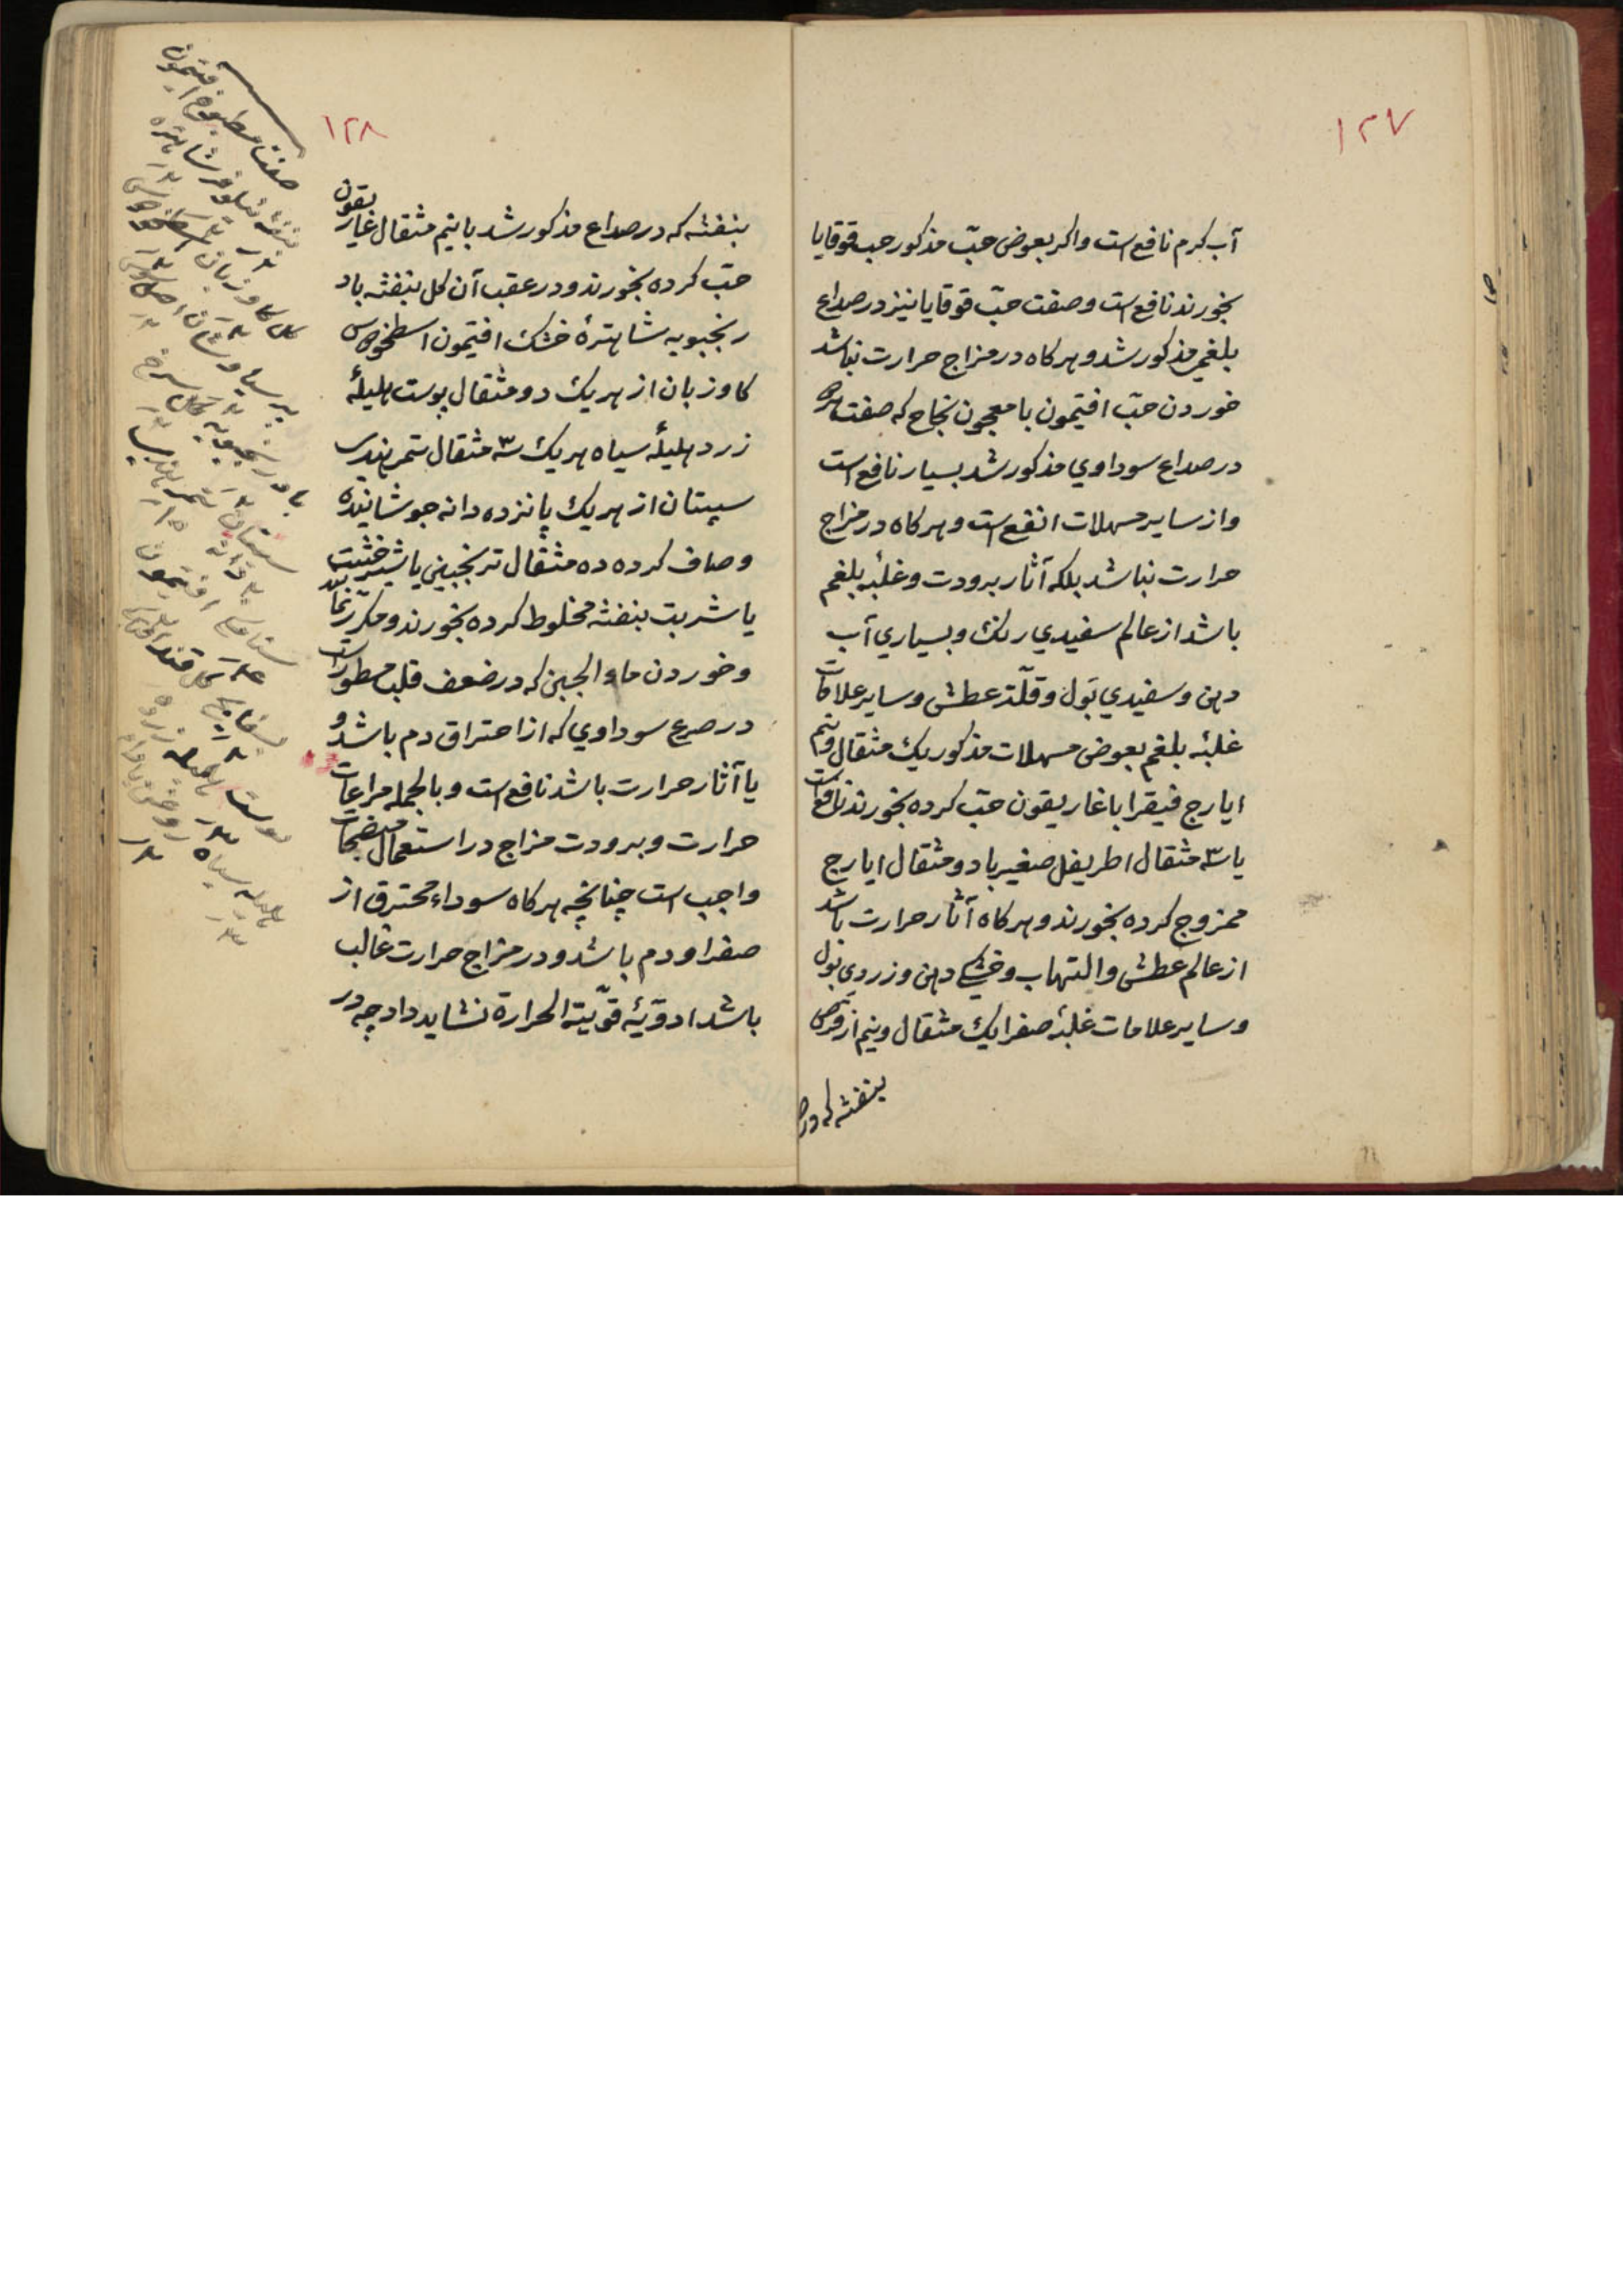 ١٢٧
آب کرم نافع است واکر بعوض حبّ مذکور حب قوقایا
بخورند نافع است وصفت حبّ قوقایا نیز در صداع
بلغمي مذکور شد و هر کاه در مزاج حرارت نباشد
خوردن حبّ افتیمون با معجون نجاح که صفت هر دو
در صداع سوداوي مذکور شد بسیار نافع است
واز سایر مسهلات انفع است و هر کاه در مزاج
حرارت نباشد بلکه آثار برودت وغلبۀ بلغم
باشد از عالم سفیدي رنک و بسیاري آب
دهن وسفیدي بول وقلّة عطش وسایر علامات
غلبۀ بلغم بعوض مسهلات مذکور یک مثقال ونیم
ایارج فیقرا با غاریقون حبّ کرده بخورند نافع است
یا سه مثقال اطریفل صغیر با دو مثقال ایارج
ممزوج کرده بخورند و هر کاه آثار حرارت باشد
از عالم عطش والتهاب وخشکي دهن وزردي بول
وسایر علامات غلبۀ صفرا یک مثقال ونیم از قرص
بنفشه که در
١٢٨
بنفشه که در صداع مذکور شد با نیم مثقال غاریقون
حبّ کرده بخورند و در عقب آن کل بنفشه باد
رنجبویه شاهترۀ خشک افتیمون اسطخودوس
کاوزبان از هر یک دو مثقال پوست هلیلۀ
زرد هلیلۀ سیاه هر یک سه مثقال تمر هندي
سپستان از هر یک پانزده دانه جوشانیده
وصاف کرده ده مثقال ترنجبین یا شیرخشت
یا شربت بنفشه مخلوط کرده بخورند ومکرّر نمایند
وخوردن ماء الجبن که در ضعف قلب مسطور است
در صرع سوداوي که از احتراق دم باشد و
یا آثار حرارت باشد نافع است وبالجمله مراعات
حرارت وبرودت مزاج در استعمال منضجات
واجب است چنانچه هر کاه سوداء محترق از
صفرا ودم باشد ودر مزاج حرارت غالب
باشد ادویۀ قویّة الحرارة نشاید داد چه در
صفت مطبوخ افتیمون
بنفشه نیلوفر شاهتره
کل کاوزبان اسطخودوس
پرسیاوشان اصل السوس
بادرنجبویه کل سرخ
سپستان تمر هندي
افتیمون
بسفایج کل قند
پوست هلیله زرد
هلیله سیاه روغن بادام